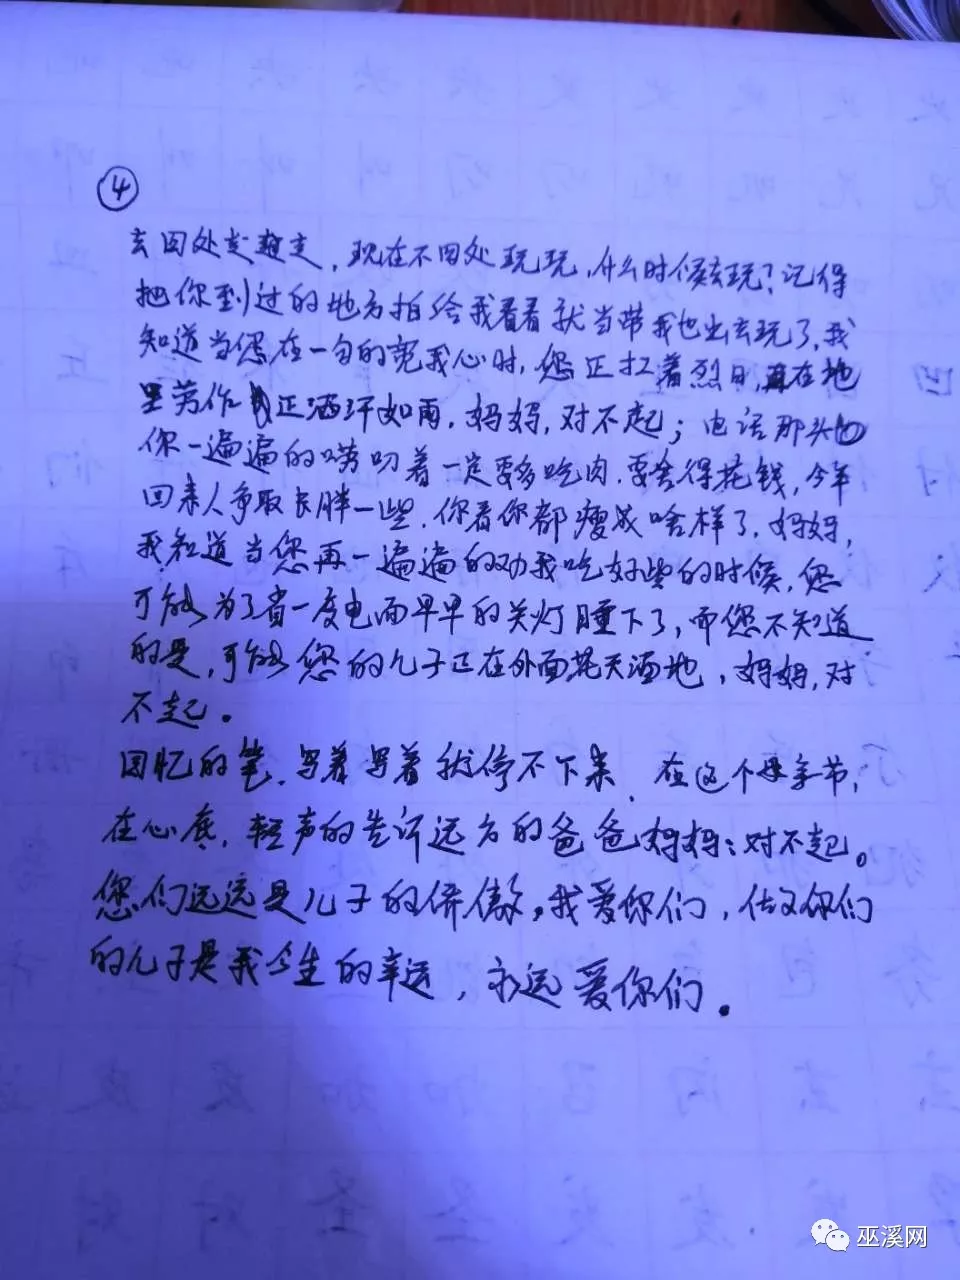 ④
去四处走走,现在不四处玩玩,什么时候去玩?记得
把你到过的地方拍给我看看就当带我也出去玩了,我
知道当您在一句的宽我心时,您正扛着烈日,在地
里劳作 正洒汗如雨,妈妈,对不起;电话那头
你一遍遍的唠叨着一定要多吃肉,要舍得花钱,今年
回来人争取长胖一些,你看你都瘦成啥样了,妈妈,
我知道当您再一遍遍的劝我吃好些的时候,您
可能为了省一度电而早早的关灯睡下了,而您不知道
的是,可能您的儿子正在外面花天酒地,妈妈,对
不起。
回忆的笔,写着写着就停不下来,在这个母亲节,
在心底,轻声的告诉远方的爸爸妈妈:对不起。
您们远远是儿子的侨傲,我爱你们,做你们
的儿子是我今生的幸运,永远爱你们。
巫溪网